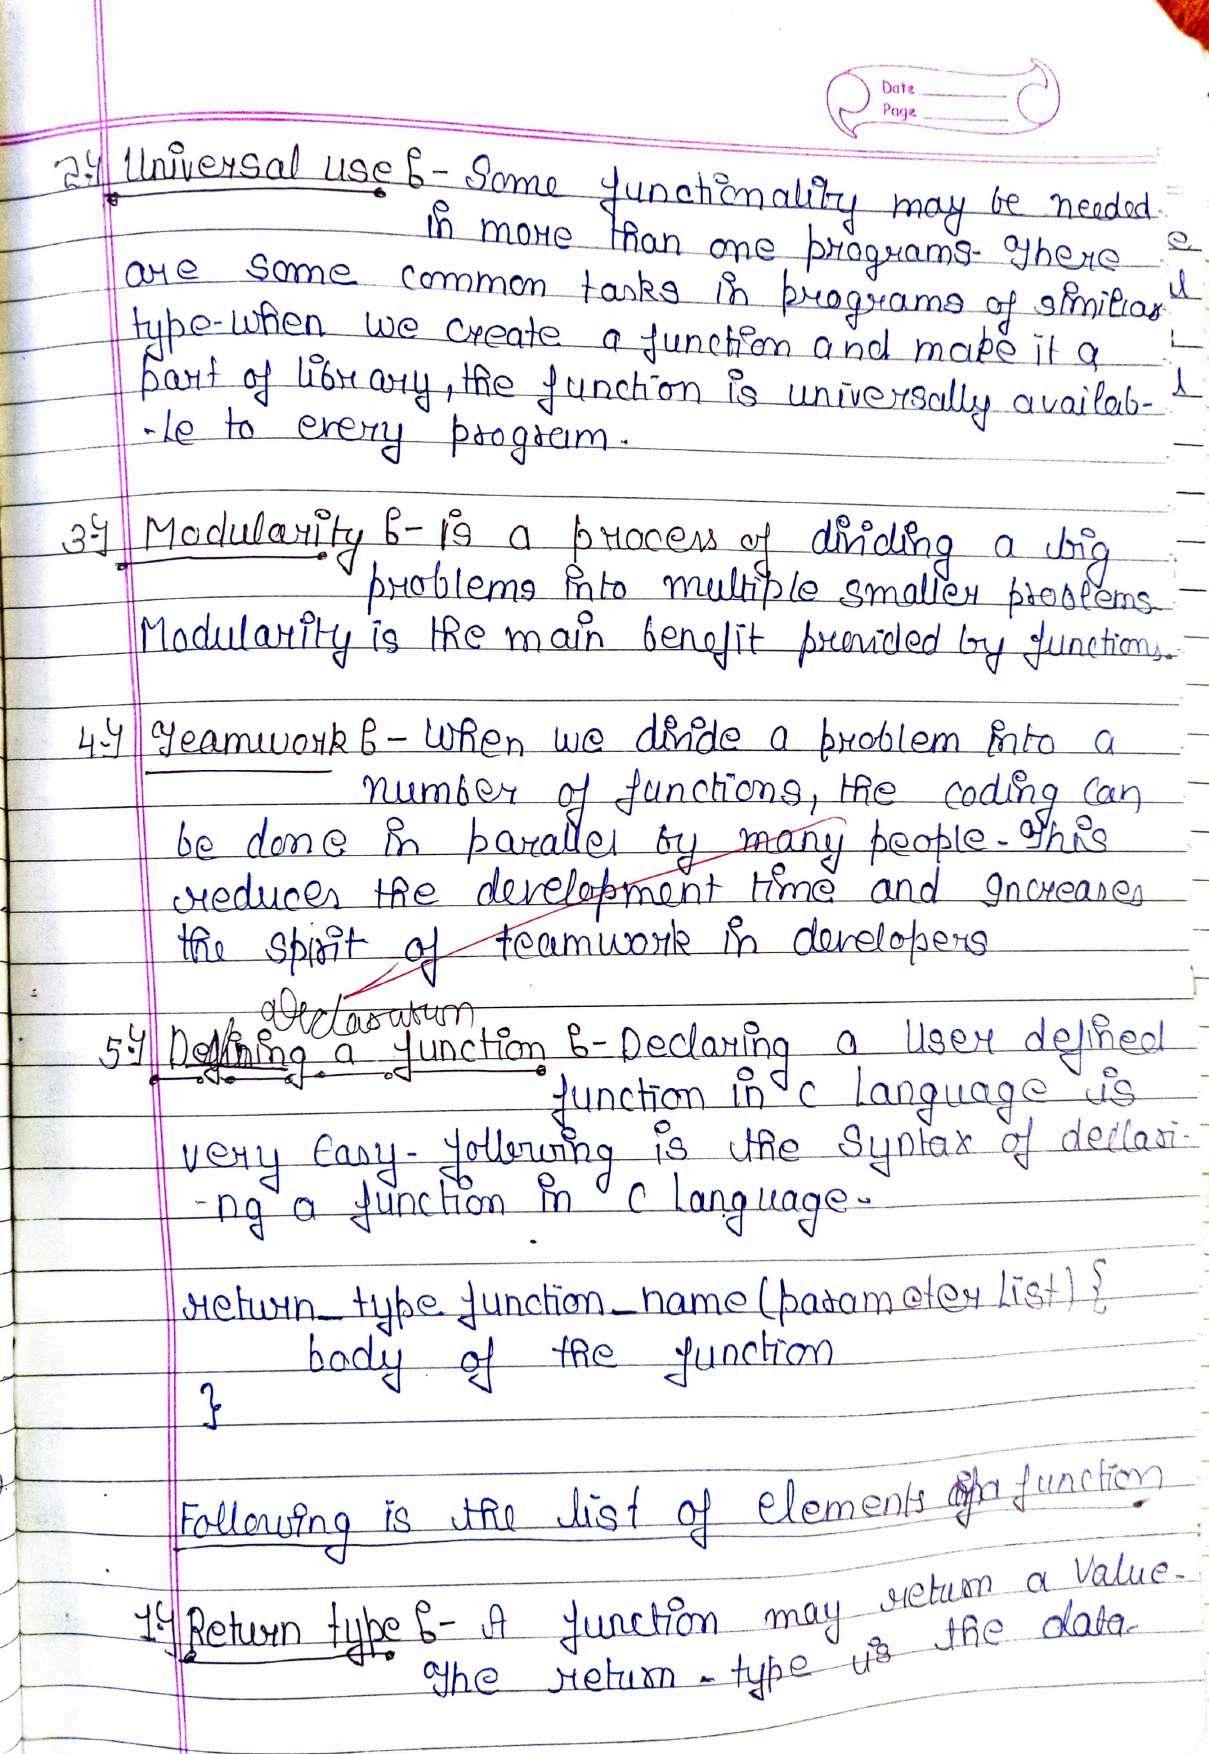 Date
Page
2.) Universal use :- Some functionality may be needed
in more than one programs. There
are some common tasks in programs of similiar
type. When we create a function and make it a
part of library, the function is universally availab-
-le to every program.
3.) Modularity :- is a process of dividing a big
problems into multiple smaller problems.
Modularity is the main benefit provided by functions.
4.) Teamwork :- When we divide a problem into a
number of functions, the coding can
be done in parallel by many people. This
reduces the development time and Increases
the spirit of teamwork in developers
declaration
5.) Defining a function :- Declaring a User defined
function in C language is
very Easy. following is the syntax of declari-
-ng a function in C language.
return_type function_name (parameter list) {
body of the function
}
Following is the list of elements of a function
1.) Return type :- A function may return a value.
The return-type is the data